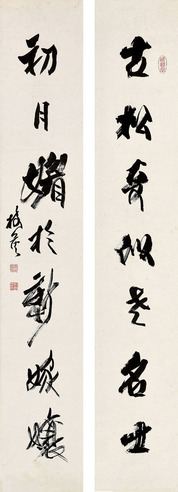 古松奇似老名士
初月媚於新嫁孃